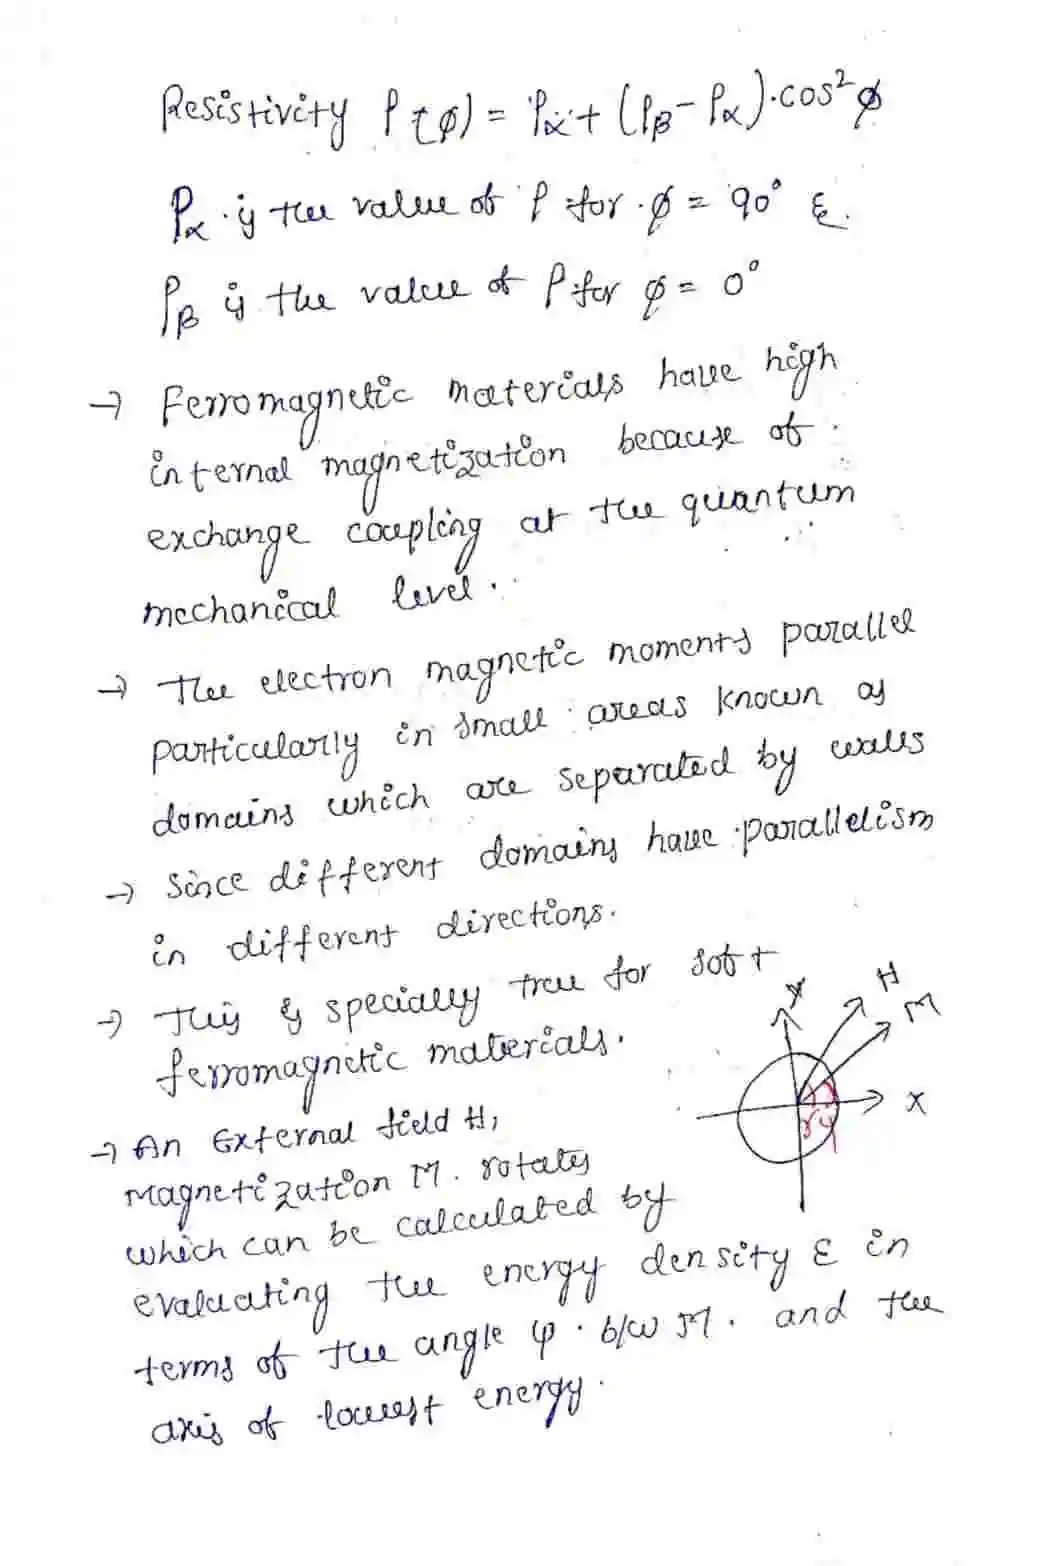 Resistivity ρ(φ) = ρα + (ρβ - ρα).cos²φ
ρα is the value of ρ for φ = 90° &
ρβ is the value of ρ for φ = 0°
→ Ferromagnetic materials have high
internal magnetization because of
exchange coupling at the quantum
mechanical level.
→ The electron magnetic moments parallel
particularly in small areas known as
domains which are separated by walls
→ Since different domains have parallelism
in different directions.
→ This is specially true for soft
ferromagnetic materials.
Y H
M
X
→ An External field H,
Magnetization M. rotates
which can be calculated by
evaluating the energy density ε in
terms of the angle φ. b/w M. and the
axis of lowest energy.